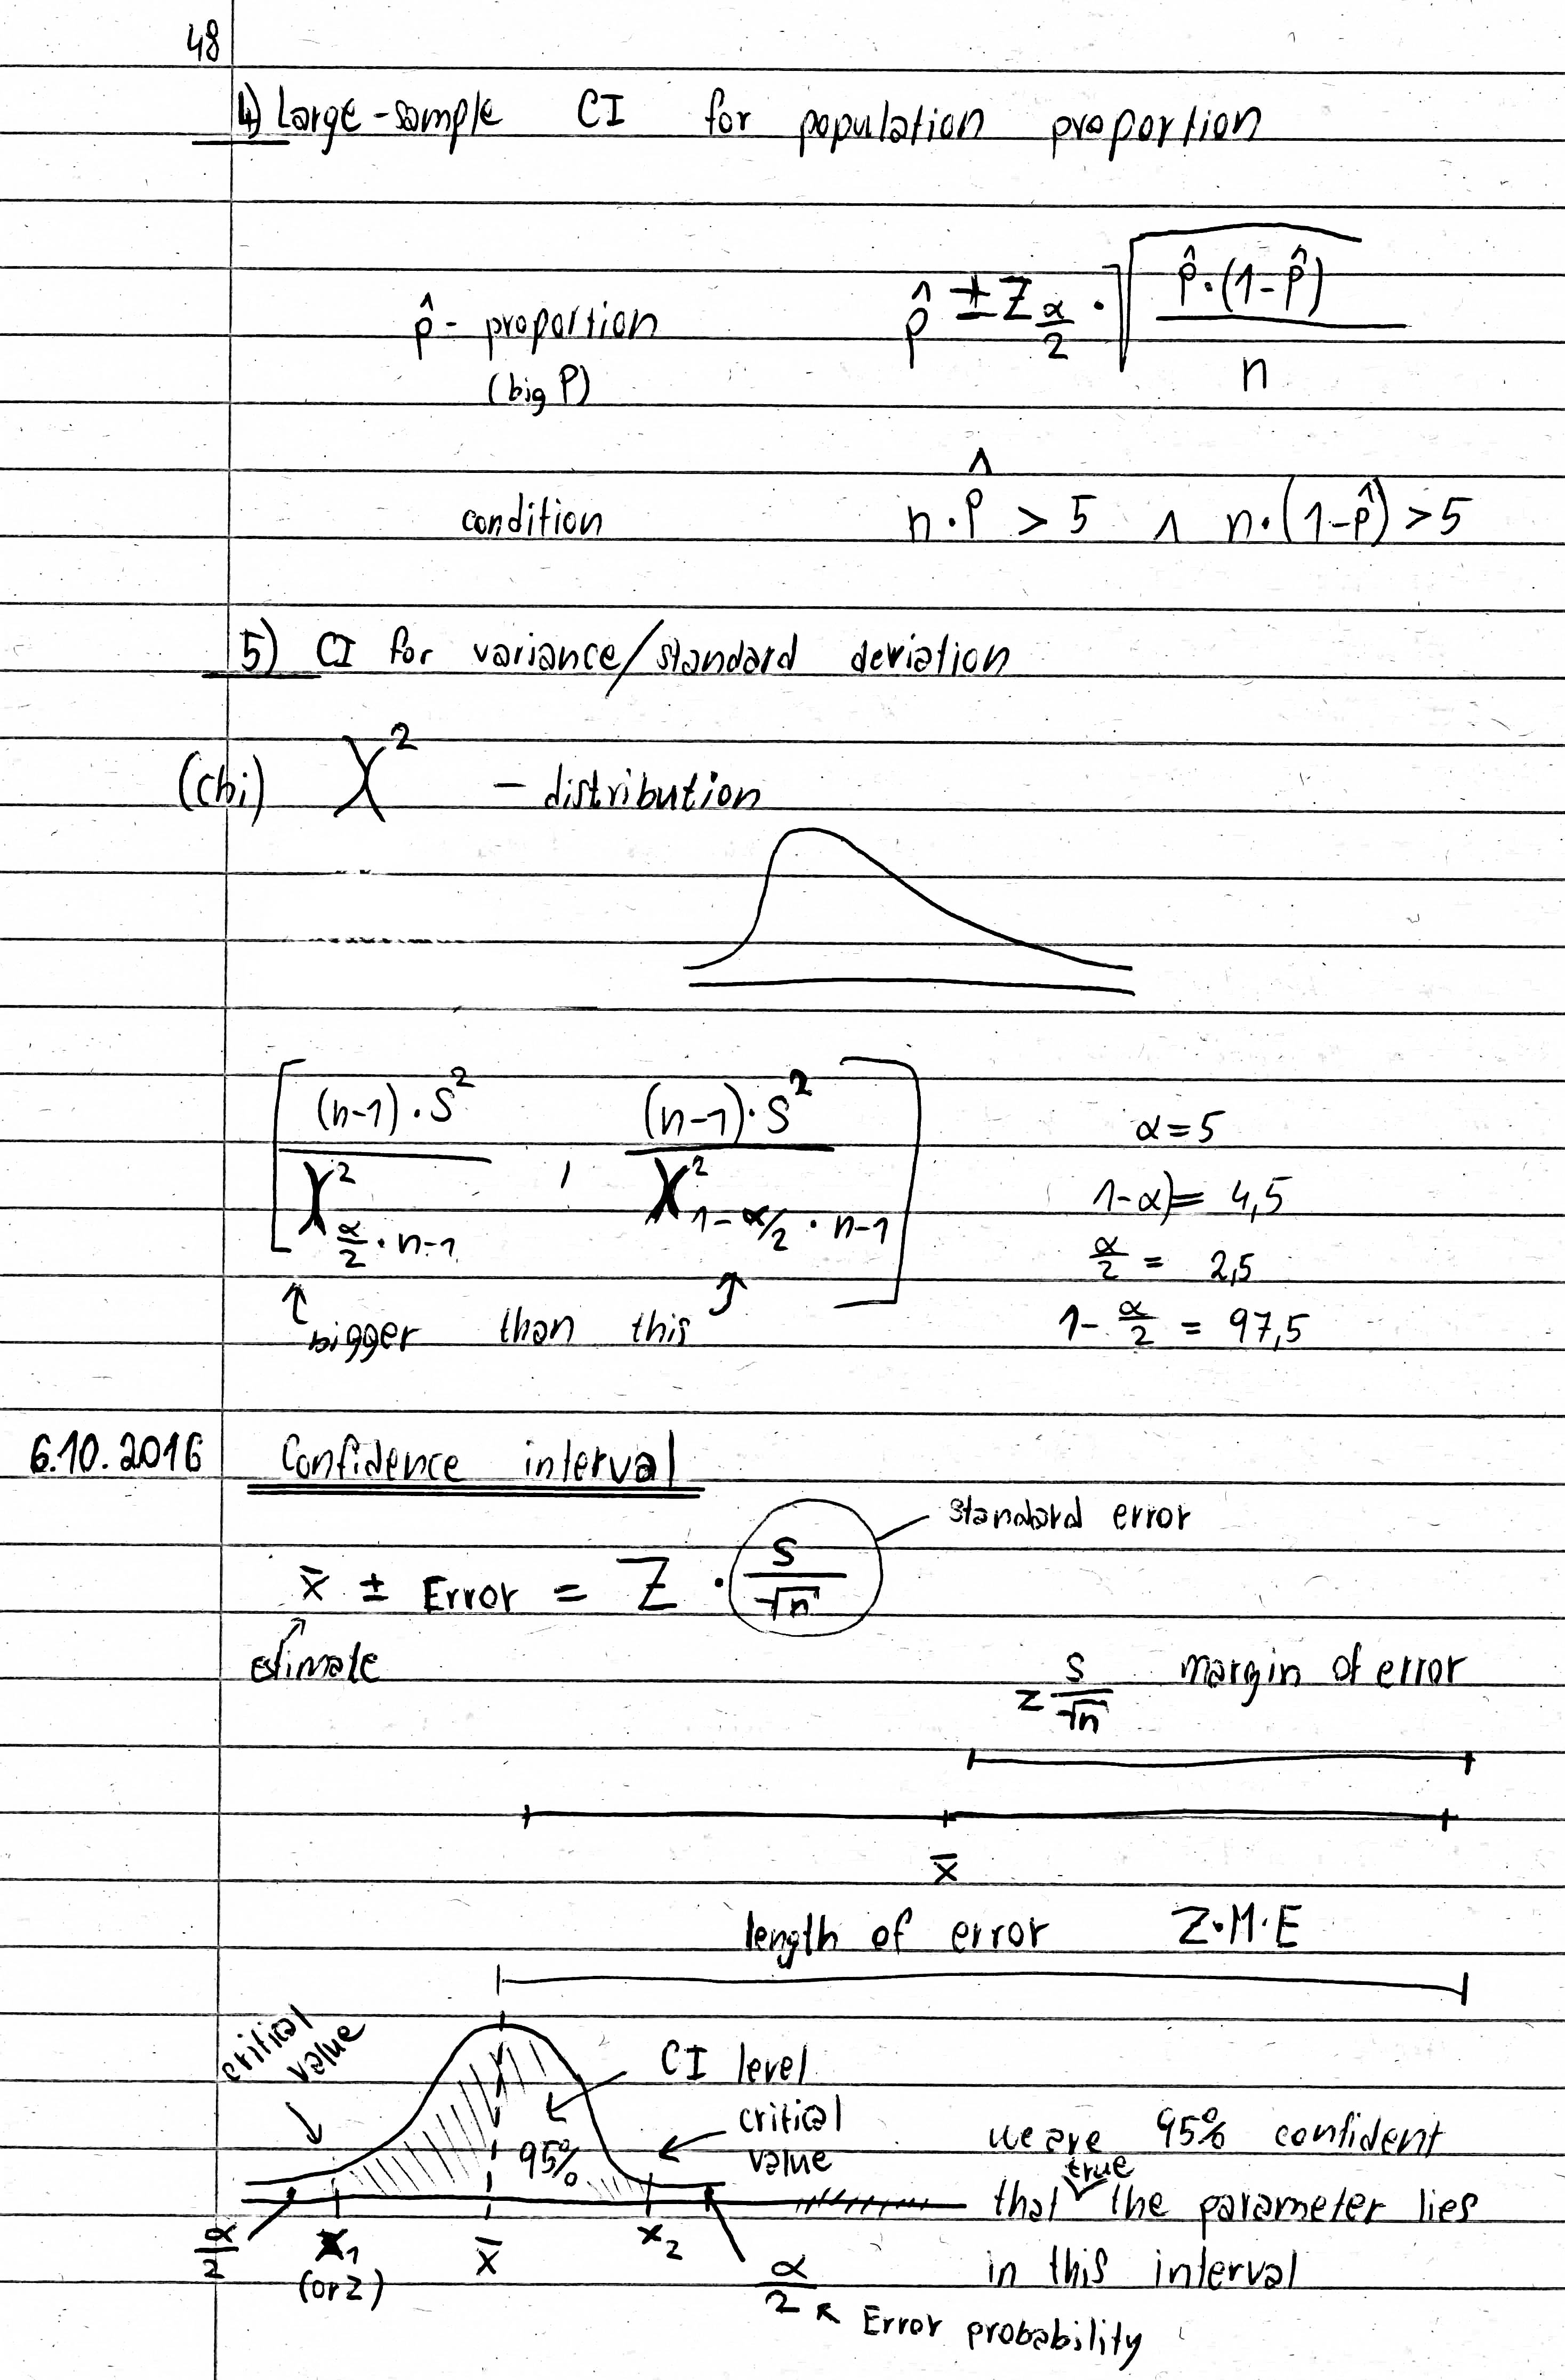 48
4) Large-sample CI for population proportion
p̂ - proportion
(big P)
p̂ ± Z α/2 · √ p̂·(1-p̂) / n
condition n·p̂ > 5 ∧ n·(1-p̂) > 5
5) CI for variance/standard deviation
(chi) χ² - distribution
[ (n-1)·S² / χ² α/2 · n-1 , (n-1)·S² / χ² 1-α/2 · n-1 ]
↑ bigger than this ↑
α=5
1-α) = 4,5
α/2 = 2,5
1- α/2 = 97,5
6.10.2016 Confidence interval
standard error
x̄ ± Error = Z · S/√n
estimate
z S/√n margin of error
x̄
length of error Z·M·E
critical value
CI level
critical value
95%
we are 95% confident
that true the parameter lies
in this interval
α/2 x1 x̄ x2 α/2
(or z)
Error probability